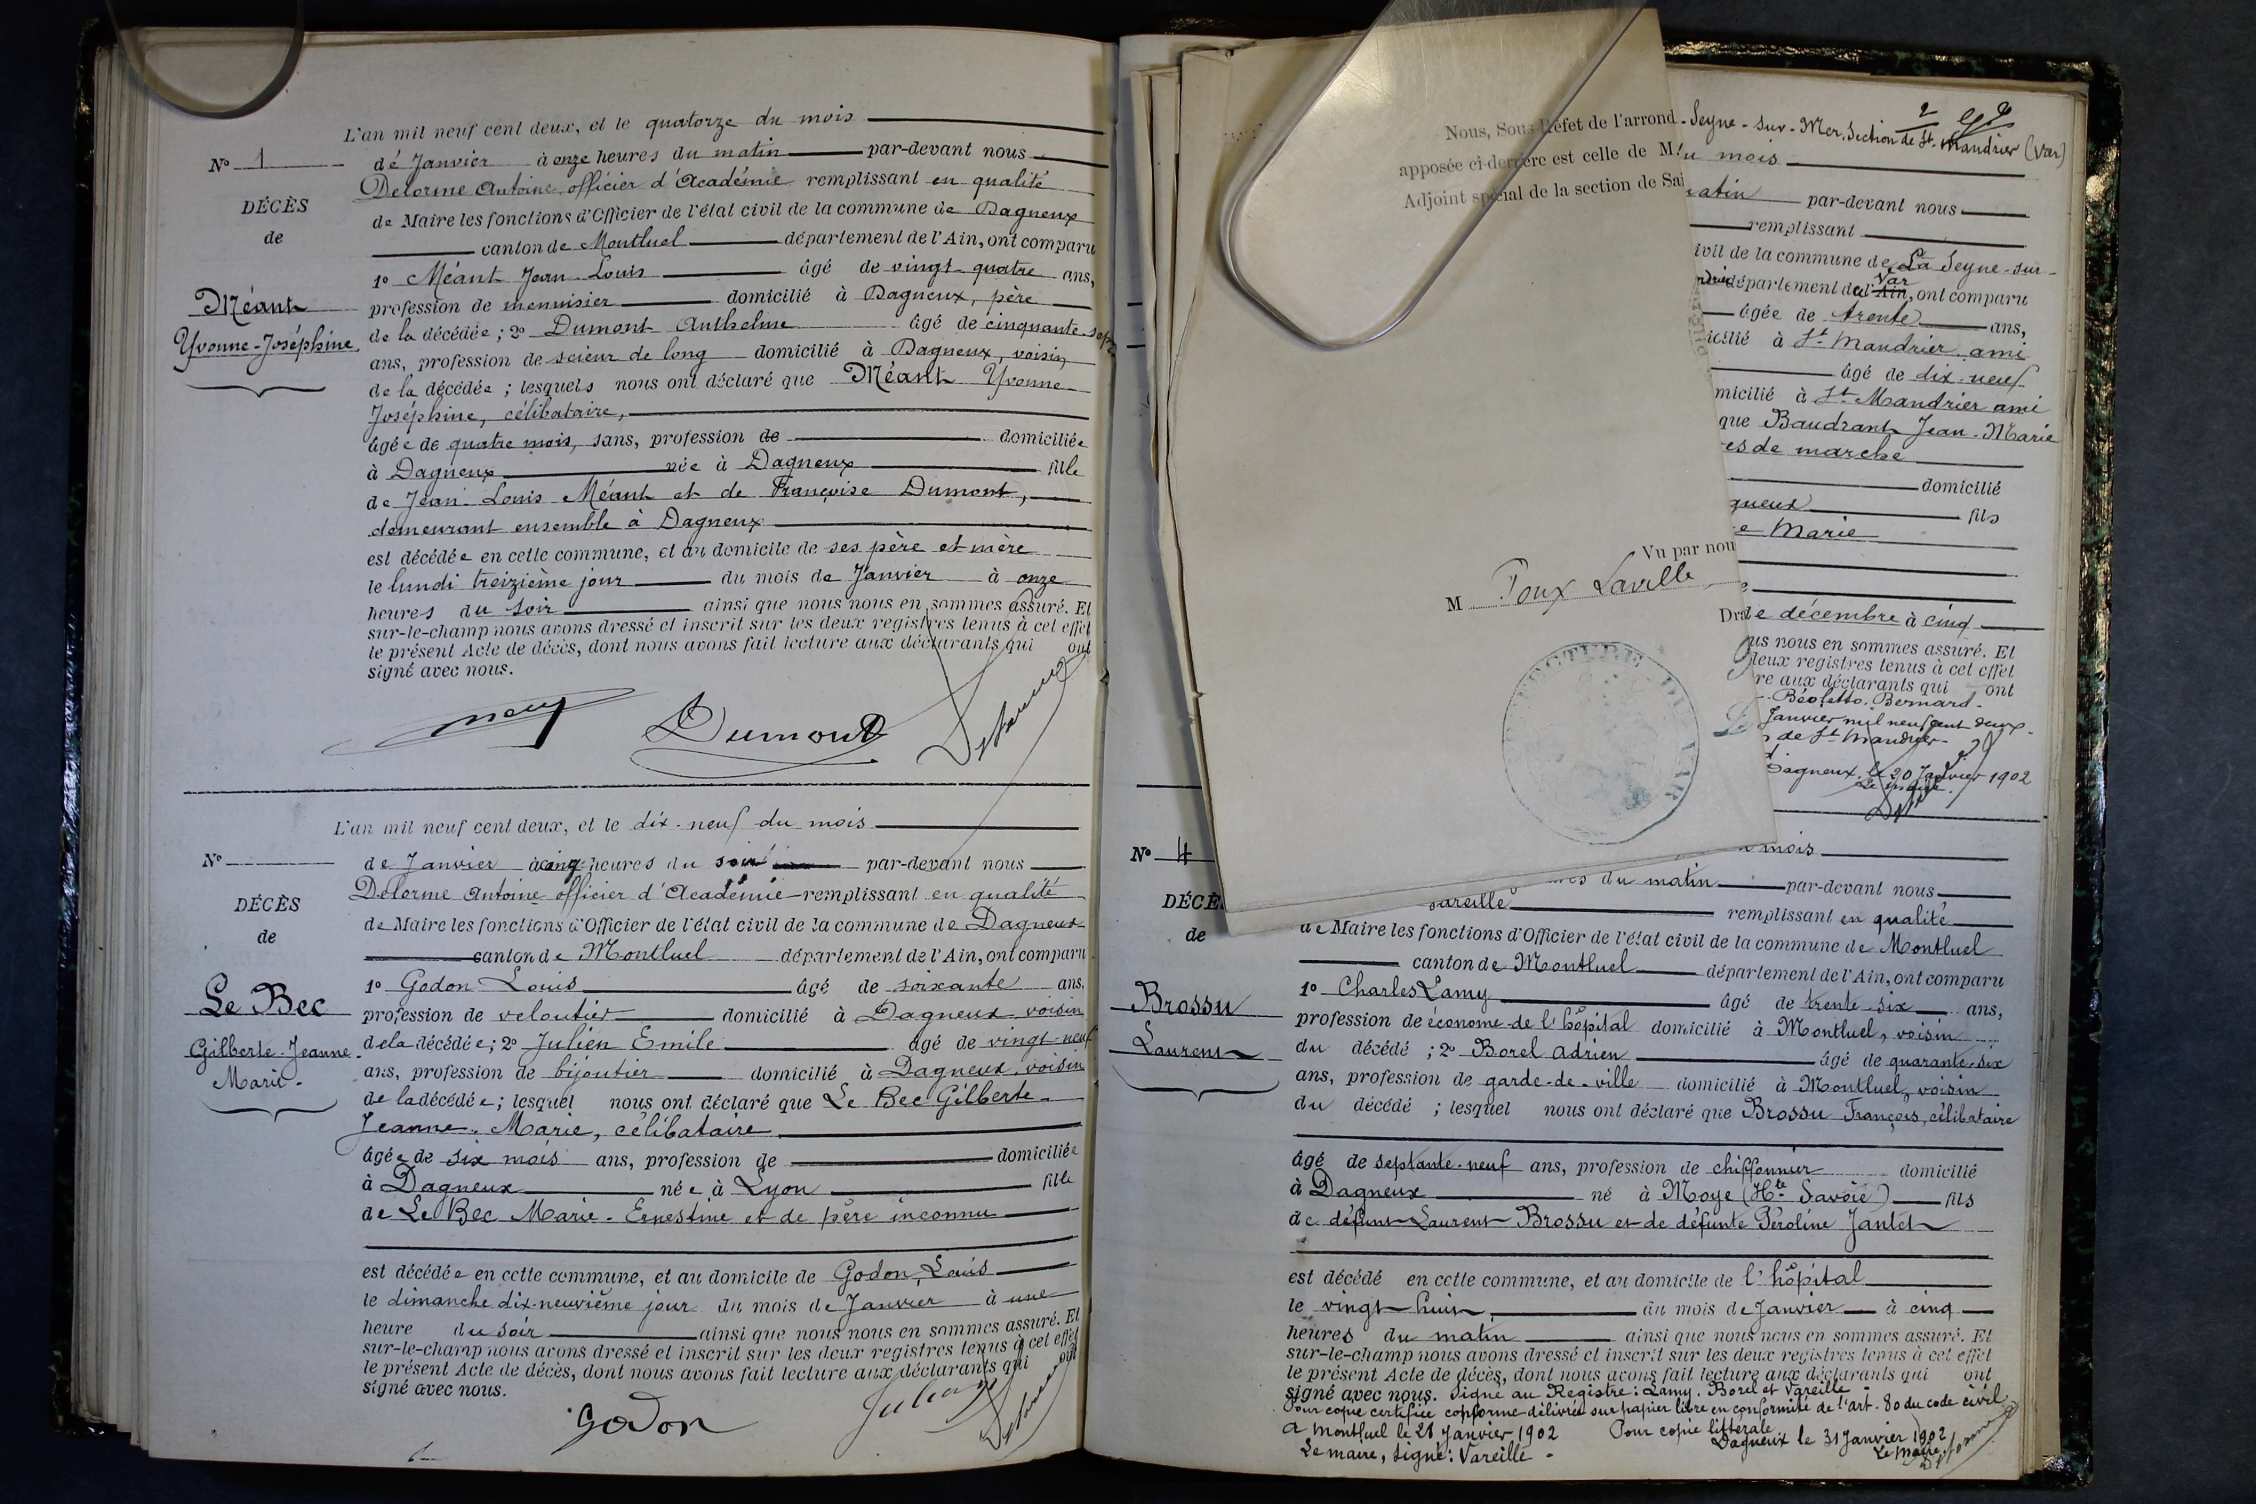 L'an mil neuf cent deux, et le quatorze du mois
de Janvier à onze heures du matin par-devant nous
Delorme Antoine officier d'Académie remplissant en qualité
de Maire les fonctions d'Officier de l'état civil de la commune de Dagneux
canton de Montluel département de l'Ain, ont comparu
1º Méant Jean Louis âgé de vingt quatre ans,
profession de menuisier domicilié à Dagneux, père
de la décédée ; 2º Dumont Anthelme âgé de cinquante sept
ans, profession de scieur de long domicilié à Dagneux, voisin
de la décédée ; lesquels nous ont déclaré que Méant Yvonne
Joséphine, célibataire,
âgée de quatre mois, sans, profession de domiciliée
à Dagneux née à Dagneux fille
de Jean Louis Méant et de Françoise Dumont,
demeurant ensemble à Dagneux
est décédée en cette commune, et au domicile de ses père et mère
le lundi treizième jour du mois de Janvier à onze
heures du soir ainsi que nous nous en sommes assuré. Et
sur-le-champ nous avons dressé et inscrit sur les deux registres tenus à cet effet
le présent Acte de décès, dont nous avons fait lecture aux déclarants qui ont
signé avec nous.
Nº 1
DÉCÈS
de
Méant
Yvonne-Joséphine
Dumont
Delorme
L'an mil neuf cent deux, et le dix-neuf du mois
de Janvier à cinq heures du soir par-devant nous
Delorme Antoine officier d'Académie remplissant en qualité
de Maire les fonctions d'Officier de l'état civil de la commune de Dagneux
canton de Montluel département de l'Ain, ont comparu
1º Godon Louis âgé de soixante ans,
profession de veloutier domicilié à Dagneux voisin
de la décédée ; 2º Julien Emile âgé de vingt-neuf
ans, profession de bijoutier domicilié à Dagneux, voisin
de la décédée ; lesquel nous ont déclaré que Le Bec Gilberte
Jeanne-Marie, célibataire
âgée de six mois ans, profession de domiciliée
à Dagneux née à Lyon fille
de Le Bec Marie-Ernestine et de père inconnu
est décédée en cette commune, et au domicile de Godon, Louis
le dimanche dix-neuvième jour du mois de Janvier à une
heure du soir ainsi que nous nous en sommes assuré. Et
sur-le-champ nous avons dressé et inscrit sur les deux registres tenus à cet effet
le présent Acte de décès, dont nous avons fait lecture aux déclarants qui ont
signé avec nous.
Nº
DÉCÈS
de
Le Bec
Gilberte-Jeanne
Marie-
Godon
Julien
Delorme
Nous, Sous-Préfet de l'arrond
apposée ci-derrière est celle de M
Adjoint spécial de la section de Sai
Vu par nou
M Toux Laville
Dra
2
Seyne-sur-Mer, Section de St-Mandrier (Var)
du mois
matin par-devant nous
remplissant
civil de la commune de La Seyne-sur-
département de l'Ain Var, ont comparu
âgée de trente ans,
domicilié à St Mandrier ami
âgé de dix-neuf
domicilié à St Mandrier ami
que Baudrant Jean-Marie
es de marche
domicilié
gneux fils
e Marie
e décembre à cinq
us nous en sommes assuré. Et
deux registres tenus à cet effet
re aux déclarants qui ont
Béoletto, Bernard.
Janvier mil neuf cent deux.
de St Mandrier
Dagneux, le 20 Janvier 1902
Le maire.
mois
heures du matin par-devant nous
Vareille remplissant en qualité
de Maire les fonctions d'Officier de l'état civil de la commune de Montluel
canton de Montluel département de l'Ain, ont comparu
1º Charles Lamy âgé de trente-six ans,
profession de économe de l'hôpital domicilié à Montluel, voisin
du décédé ; 2º Borel Adrien âgé de quarante-six
ans, profession de garde-de-ville domicilié à Montluel, voisin
du décédé ; lesquel nous ont déclaré que Brossu François, célibataire
âgé de septante-neuf ans, profession de chiffonnier domicilié
à Dagneux né à Moye (Hte Savoie) fils
de défunt Laurent Brossu et de défunte Péroline Jantet
est décédé en cette commune, et au domicile de l'hôpital
le vingt-huit, du mois de Janvier à cinq
heures du matin ainsi que nous nous en sommes assuré. Et
sur-le-champ nous avons dressé et inscrit sur les deux registres tenus à cet effet
le présent Acte de décès, dont nous avons fait lecture aux déclarants qui ont
signé avec nous. Signé au Registre : Lamy, Borel et Vareille -
Pour copie certifiée conforme délivrée sur papier libre en conformité de l'art. 80 du code civil
A Montluel le 28 Janvier 1902 Pour copie littérale
Dagneux le 31 Janvier 1902
Le maire, signé : Vareille - Le maire,
Delorme
Nº 4
DÉCÈS
de
Brossu
Laurent